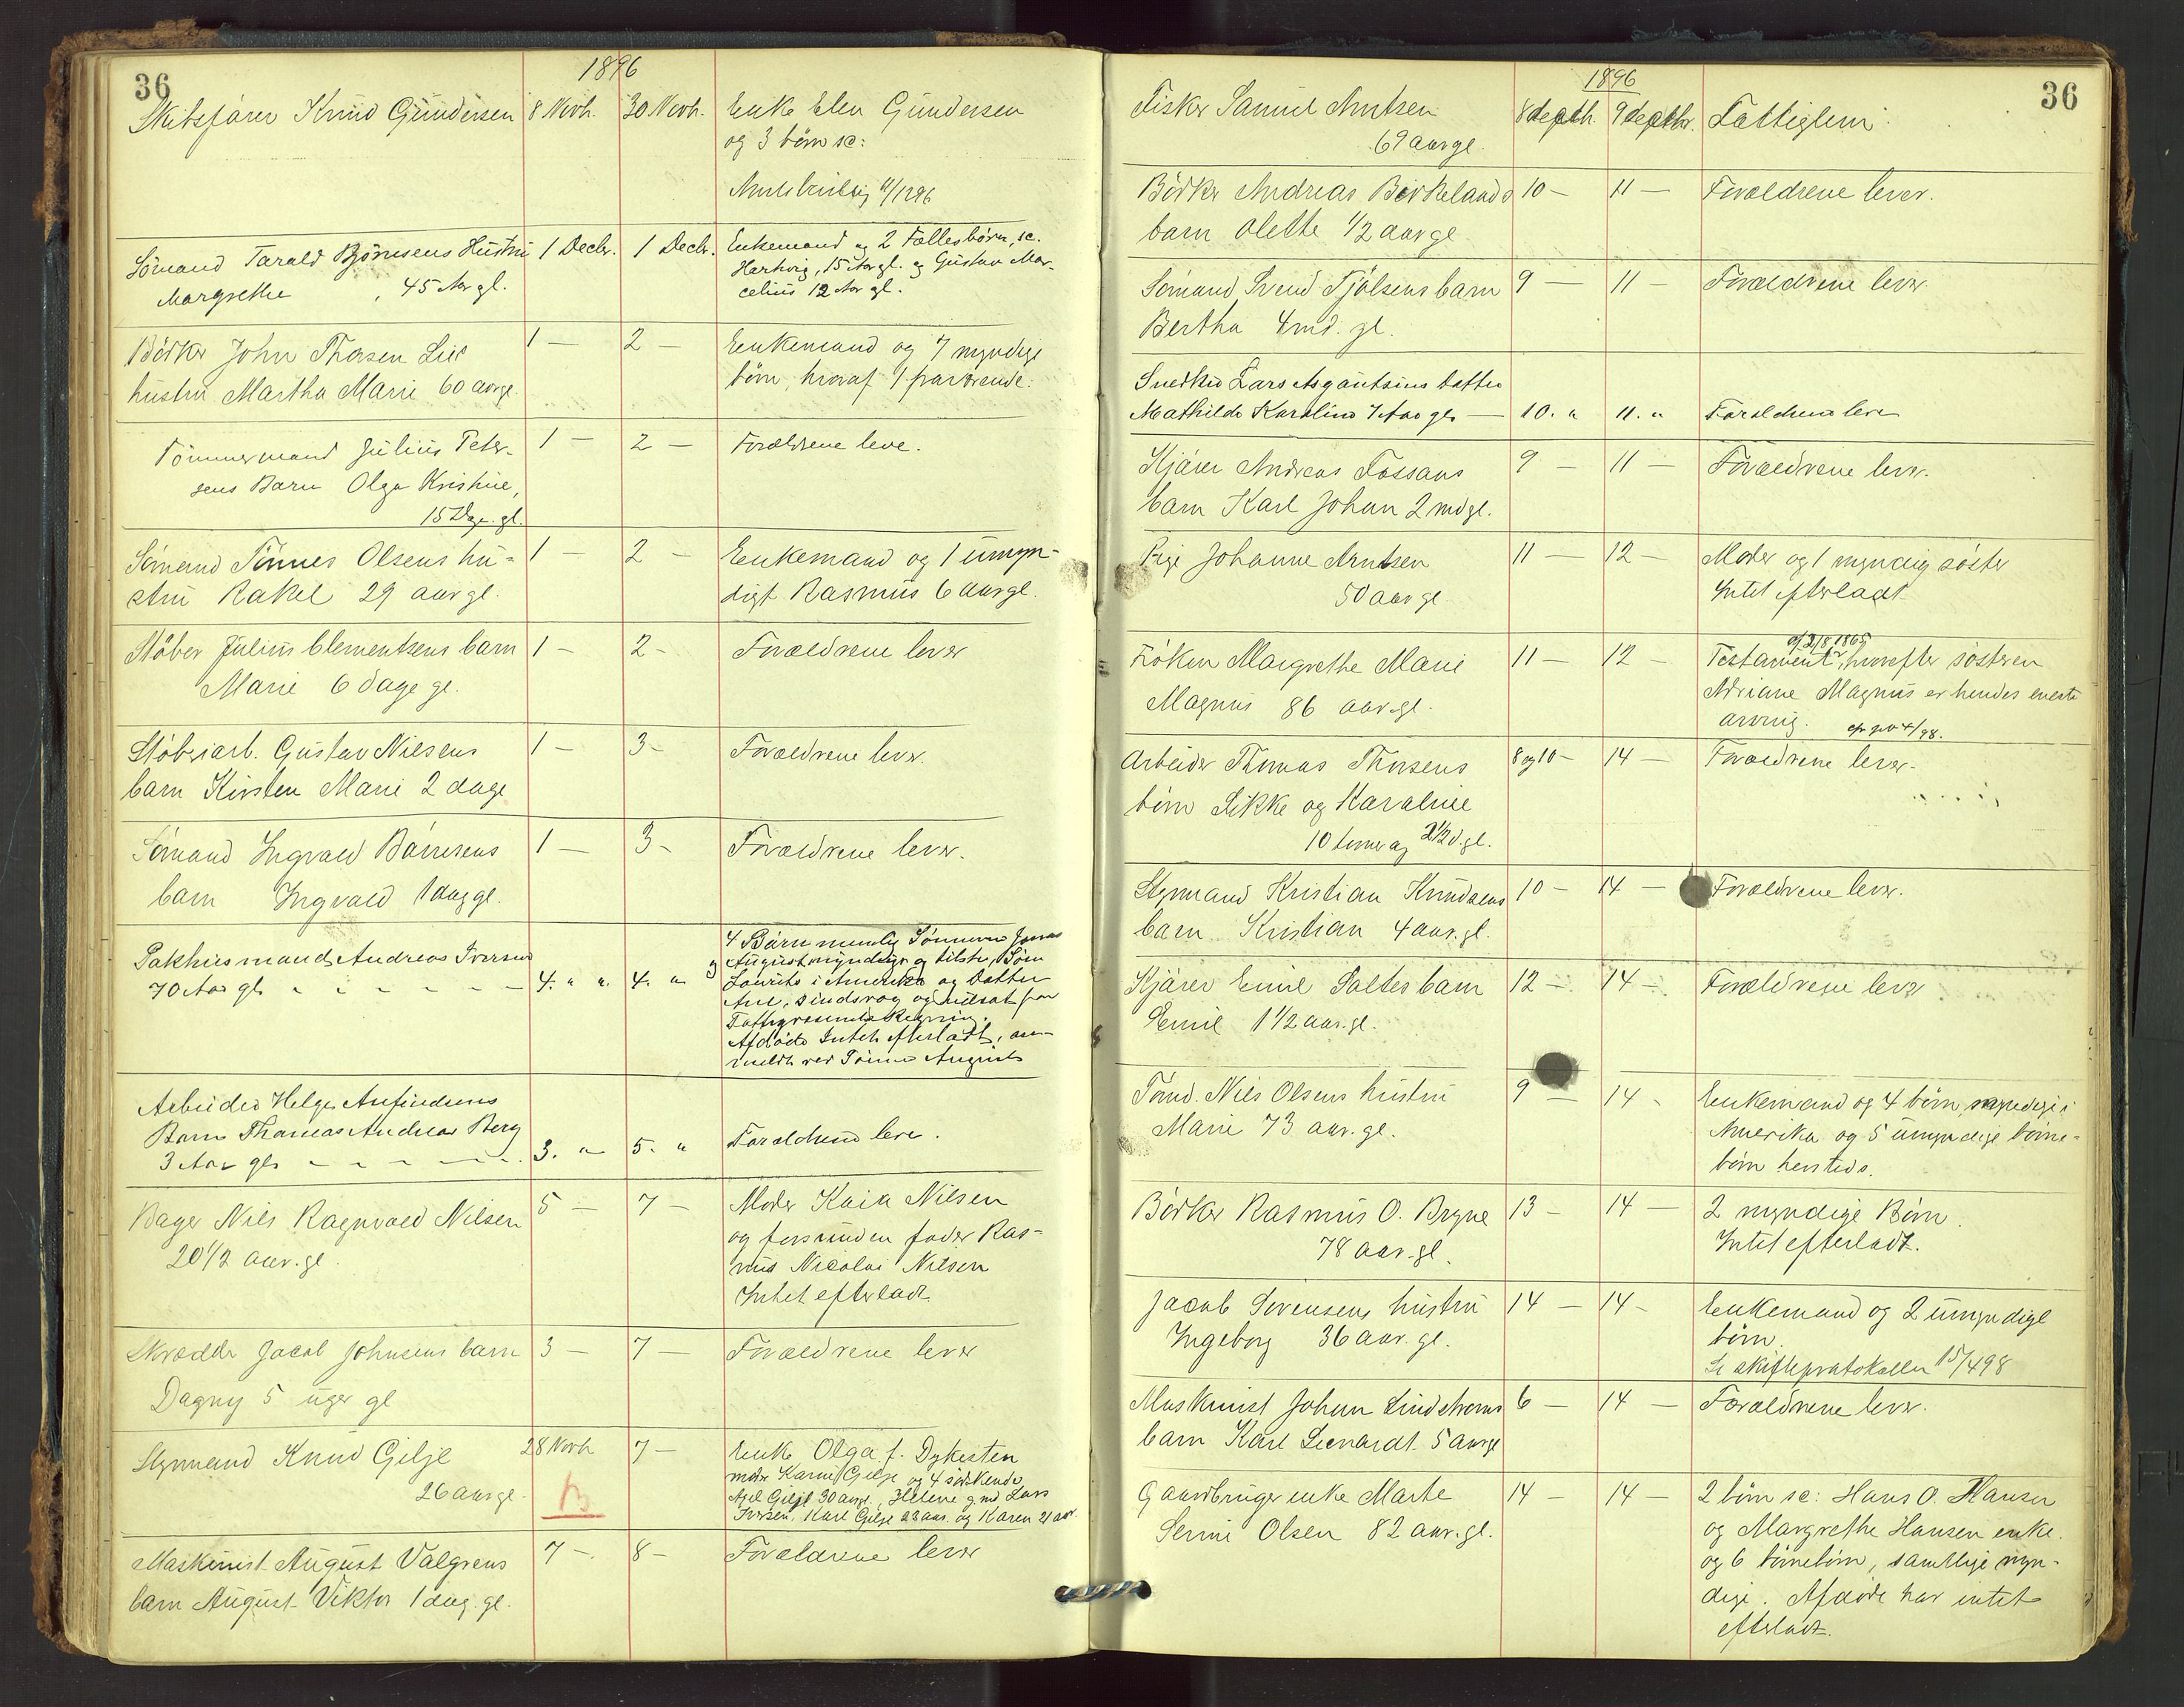 36
1896
Skibsfører Knud Gundersen 8 Novb. 30 Novb. Enke Elen Gundersen
og 3 børn sc:
11/1296
Sømand Tarald Bjørnsens Hustru 1 Decbr. 1 Decbr. Enkemand og 2 Fællesbørn, sc.
Margrethe , 45 Aar gl. Hartvig, 15 Aar gl. og Gustav Mar-
celius 12 Aar gl.
Bødker John Thorsen Lies 1 — 2 — Enkemand og 7 myndige
hustru Martha Marie 60 aar gl. børn, hvoraf 1 fraværende.
Tømmermand Julius Peter- 1 — 2 — Forældrene leve.
sens Barn Olga Kristine,
15 Dage gl.
Sømand Tønnes Olsens hu- 1 — 2 — Enkemand og 1 umyn-
stru Rakel 29 aar gl. digt Rasmus 6 aar gl.
Støber Julius Clementsens barn 1 — 2 - Forældrene lever
Marie 6 dage gl.
Støberiarb. Gustav Nilsens 1 — 3 - Forældrene lever.
barn Kirsten Marie 2 dage
Sømand Ingvald Børresens 1 — 3 - Forældrene lever.
barn Ingvald 1 dag gl.
4 Børn nemlig Sønnerne Jonas
Pakhusmand Andreas Iversen og August myndige og tilste, Søn
70 Aar gl. 4. " ". 4. " Laurits i Amerika og Datter
Ane, sindsvag og udsat for
Fattigvæsenets Regning.
Afdøde Intet efterladt, an-
meldt ved Sønnen August
Arbeider Helge Anfindsens
Barn Thomas Andreas Berg Forældrene leve.
3 Aar gl. 3. " 5. "
Bager Nils Ragnvald Nilsen 5 — 7 — Moder Kaia Nilsen
20 1/2 aar. gl. og forsvunden fader Ras-
mus Nicolai Nilsen
Intet efterladt
Skrædder Jacob Johnsens barn 3 — 7 — Forældrene lever
Dagny 5 uger gl
Styrmand Knud Gilje 28 Novb 7 — Enke Olga f. Dykesten
26 aar gl. moder Karen Gilje og 4 sødskende
Axel Gilje 30 aar gl., Helene g. md Lars
Iversen, Karl Gilje 23 aar. og Karen 21 aar.
Maskinist August Valgrens 7 —. 8 — Forældrene lever
barn August Viktor 1 dag. gl.
36
1896
Fisker Samuel Arntsen 8 decbr. 9 decbr. Fattiglem.
69 aar gl.
Bødker Andreas Birkelands 10 — 11 — Forældrene lever.
barn Olette 1/2 aar gl
Sømand Svend Tjølsens barn 9 — 11 — Forældrene lever
Bertha 4 md. gl.
Snedker Lars Asgautsens datter
Mathilde Karoline 7 Aar gl. — 10. " 11. " Forældrene leve
Kjører Andreas Fossans 9 — 11 — Forældrene lever.
barn Karl Johan 2 md gl.
Pige Johanne Arntsen 11 — 12 — Moder og 1 myndig søster
50 aar gl Intet efterladt
af 2/8 1865
Frøken Margrethe Marie 11 — 12 — Testament, hvorefter søsteren
Magnus 86 aar. gl. Adriane Magnus er hendes eneste
arving.
Arbeider Thomas Thorsens 8 og 10 — 14 — Forældrene lever.
børn Sikke og Karoline
10 timer og 2 1/2 d. gl.
Styrmand Kristian Knudsens 10 — 14 — Forældrene lever.
barn Kristian 4 aar. gl.
Kjører Emil Saltes barn 12 — 14 — Forældrene lever
Emil 1 1/2 aar. gl.
Tømd. Nils Olsens hustru 9 — 14 - Enkemand og 4 børn, myndige i
Marie 73 aar. gl. Amerika og 5 umyndige børne-
børn hersteds.
Bødker Rasmus O. Bryne 13 - 14 — 2 myndige Børn.
78 aar. gl. Intet efterladt.
Jacob Sørensens hustru 14 — 14 - Enkemand og 2 umyndige
Ingeborg 36 aar. gl. børn.
Se skifteprotokollen 15/498
Maskinist Johan Lindstrøms 6 — 14 — Forældrene lever.
barn Karl Leonardt 5 aar gl
Gaardbruger enke Marte 14 — 14 — 2 børn sc: Hans O. Hansen
Serine Olsen 82 aar. gl. og Margrethe Hansen enke.
og 6 børnebørn, samtlige myn-
dige. Afdøde har intet
efterladt.